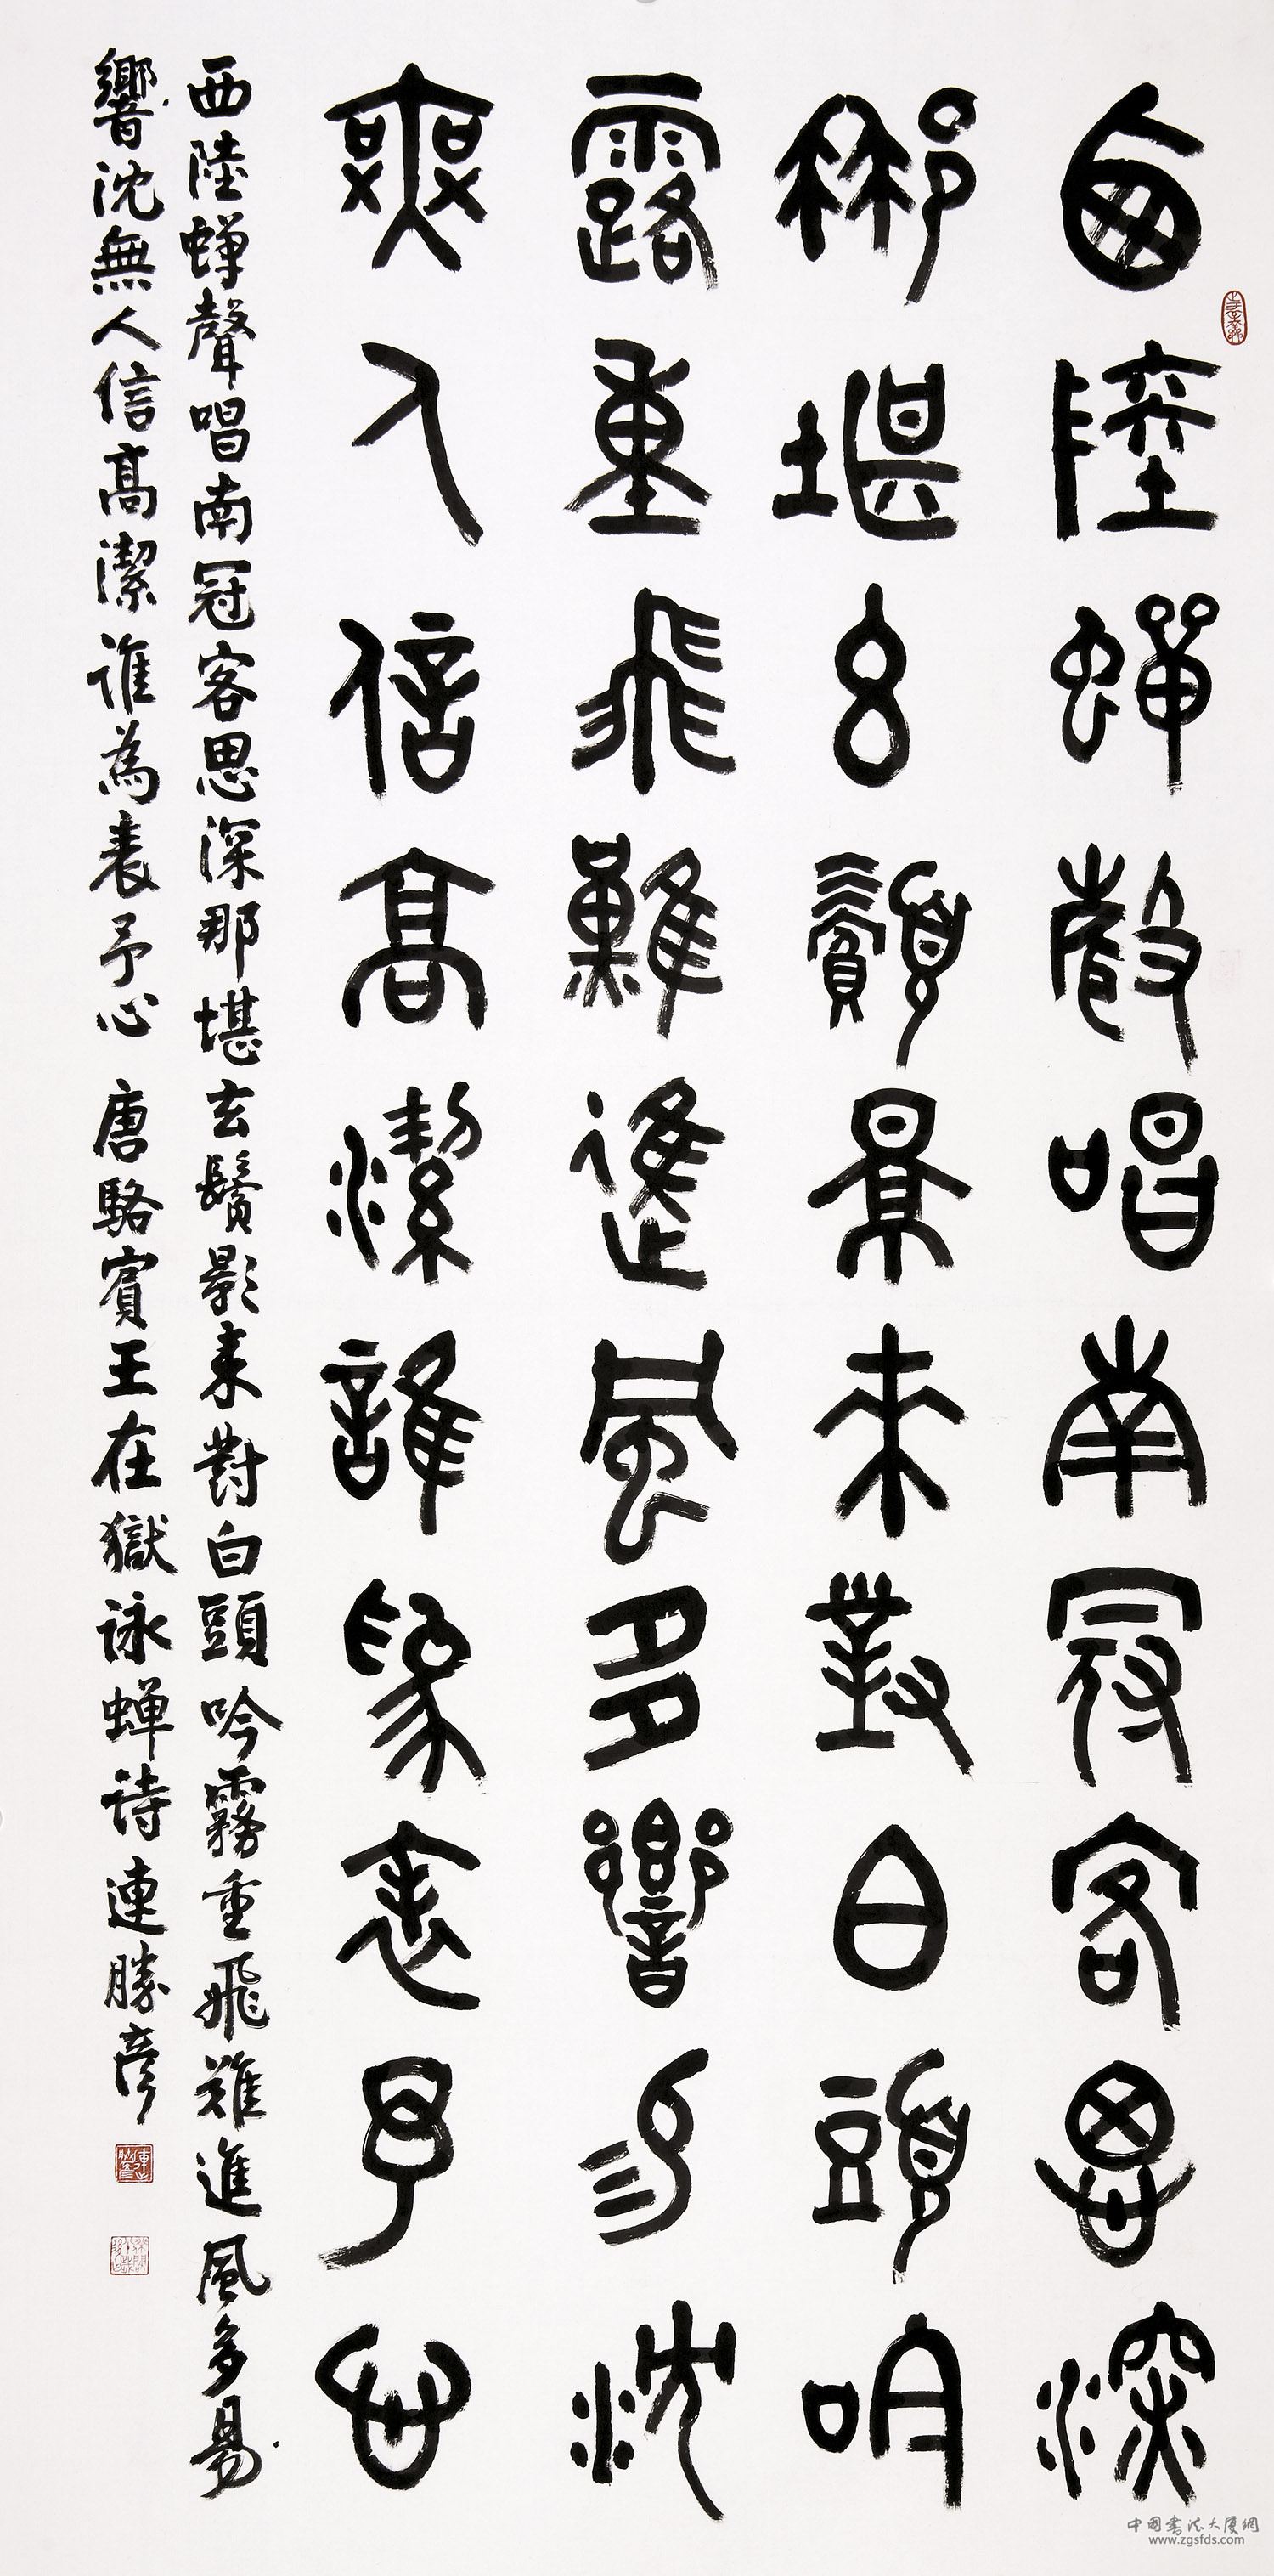 西陸蟬聲唱南冠客思深
那堪玄鬢景來對白頭吟
露重飛難進風多響易沈
無人信高潔誰為表予心
西陸蟬聲唱南冠客思深那堪玄鬢影來對白頭吟霧重飛難進風多易
響沈無人信高潔誰為表予心 唐駱賓王在獄詠蟬詩連勝彥
中國書法大廈網
www.zgsfds.com